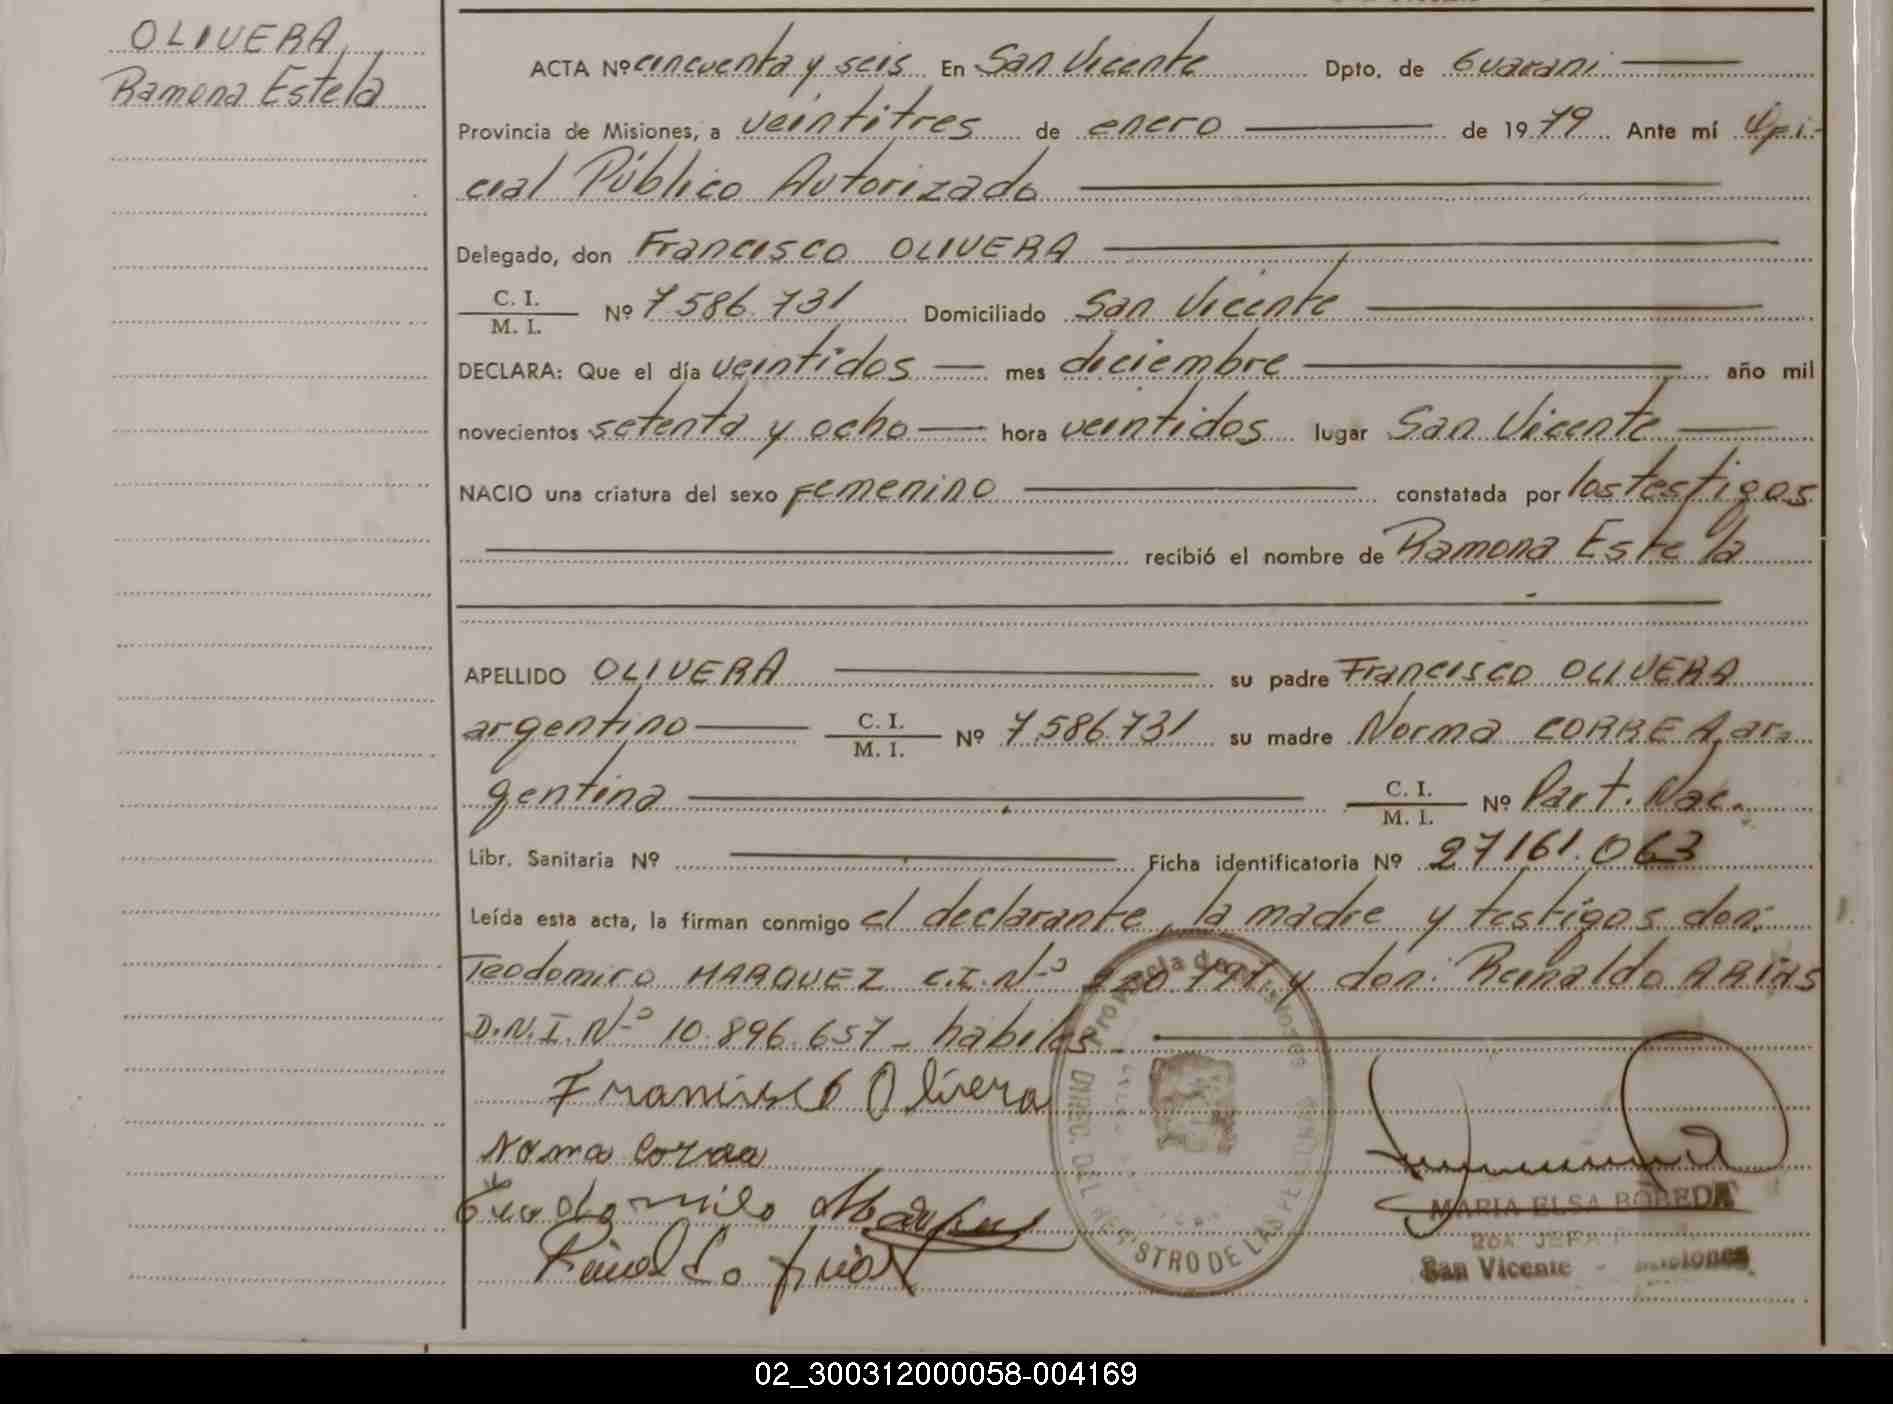 OLIVERA,
Ramona Estela
ACTA Nº cincuenta y seis En San Vicente Dpto. de Guarani
Provincia de Misiones, a veintitres de enero de 1979 Ante mí Ofi-
cial Público Autorizado
Delegado, don Francisco OLIVERA
C. I.
M. I. Nº 7.586.731 Domiciliado San Vicente
DECLARA: Que el día veintidos mes diciembre año mil
novecientos setenta y ocho hora veintidos lugar San Vicente
NACIO una criatura del sexo femenino constatada por los testigos
recibió el nombre de Ramona Estela
APELLIDO OLIVERA su padre Francisco OLIVERA
argentino C. I.
M. I. Nº 7.586.731 su madre Norma CORREA, ar-
gentina C. I.
M. I. Nº Part. Nac.
Libr. Sanitaria Nº Ficha identificatoria Nº 27161.063
Leída esta acta, la firman conmigo el declarante, la madre y testigos don:
Teodomiro MARQUEZ C.I. Nº y don: Reinaldo ARIAS
D.N.I. Nº 10.896.657 - habiles -
Francisco Olivera
Norma Correa
Provincia de Misiones
DIREC. DEL REGISTRO DE LAS PERSONAS
MARIA ELSA BOBEDA
San Vicente - Misiones
02_300312000058-004169